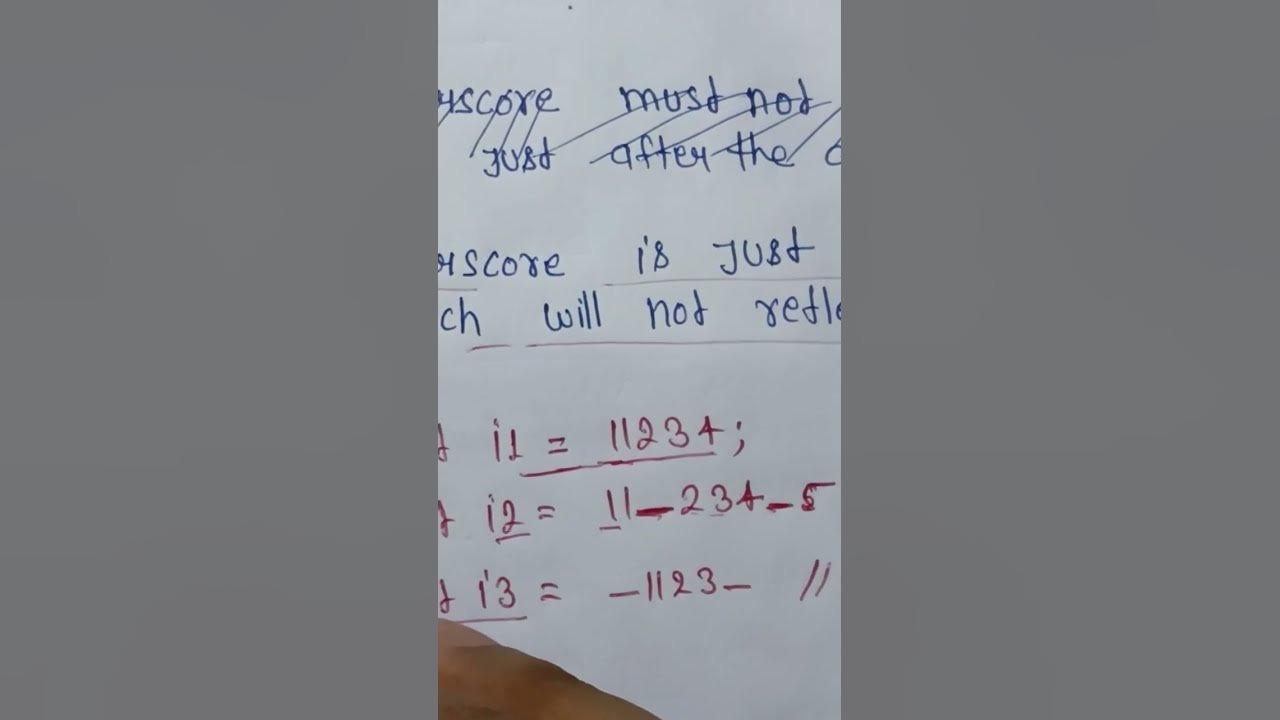 rscore must not
just after the
rscore is just
ch will not refle
t i1 = 11234;
t i2 = 11_234_5
t i3 = _1123_ //